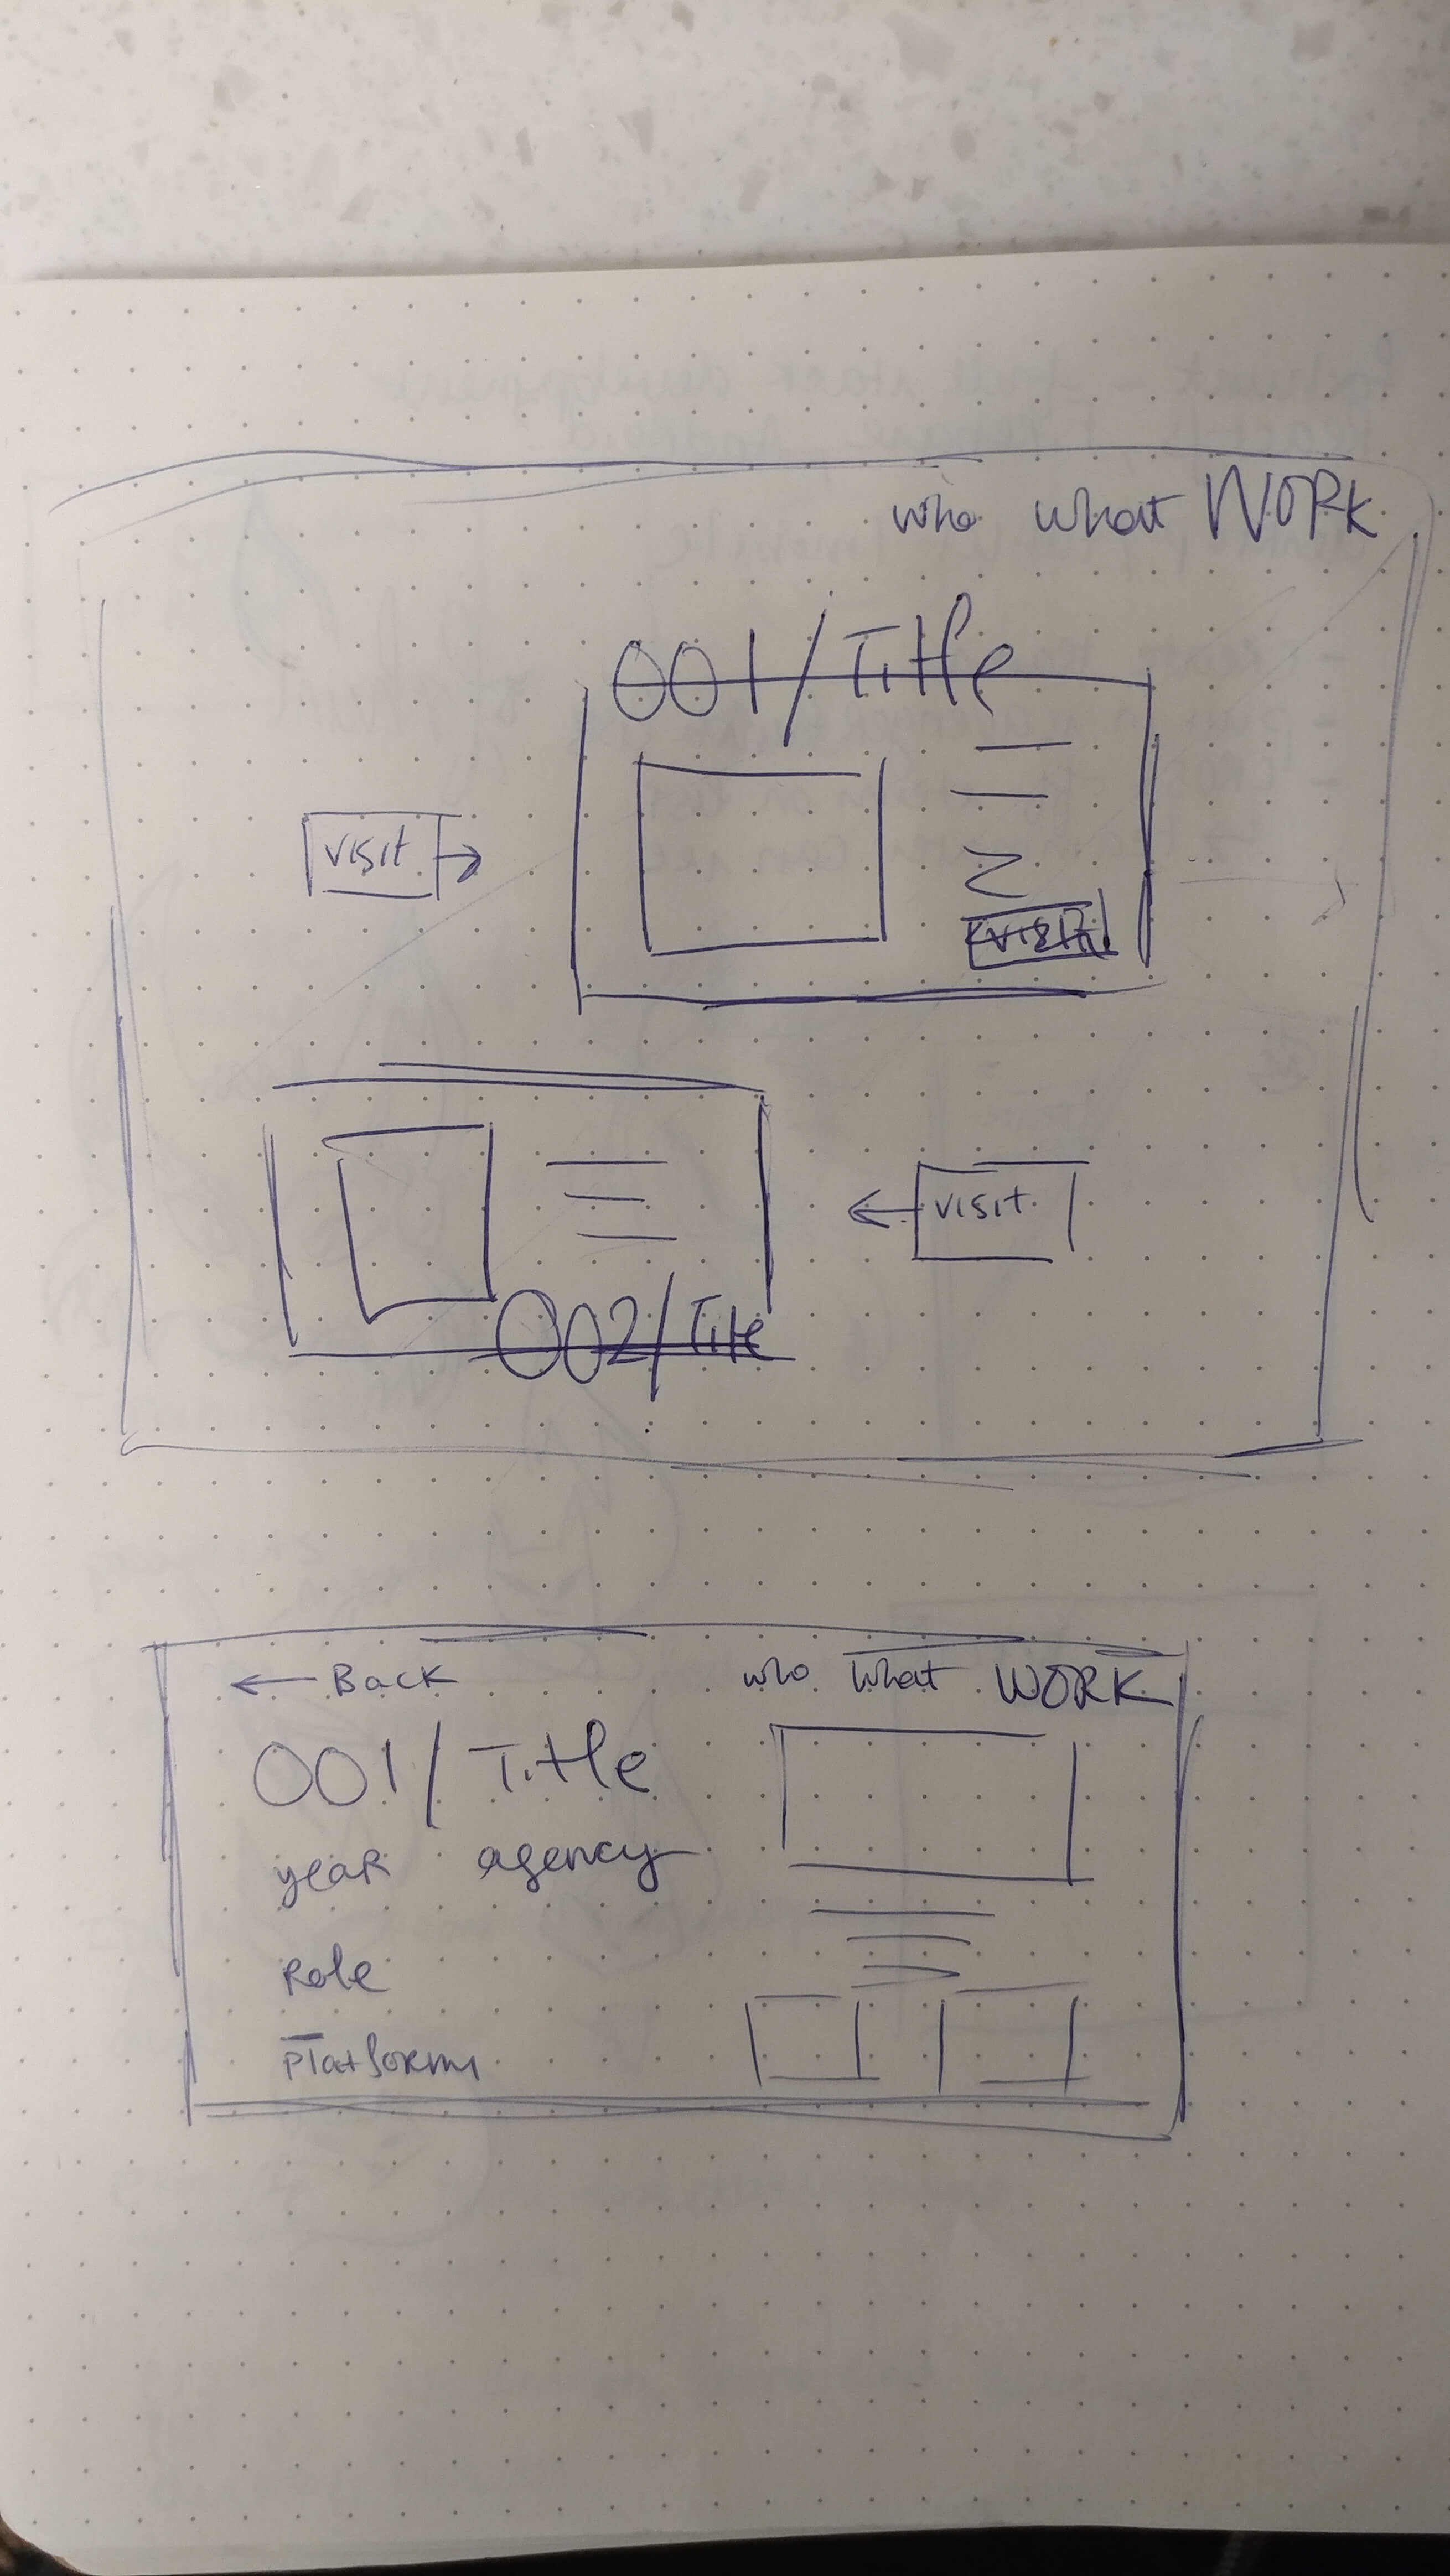 who what WORK
001/Title
visit →
← visit
002/Title
← Back who what WORK
001/Title
year agency
Role
Platforms